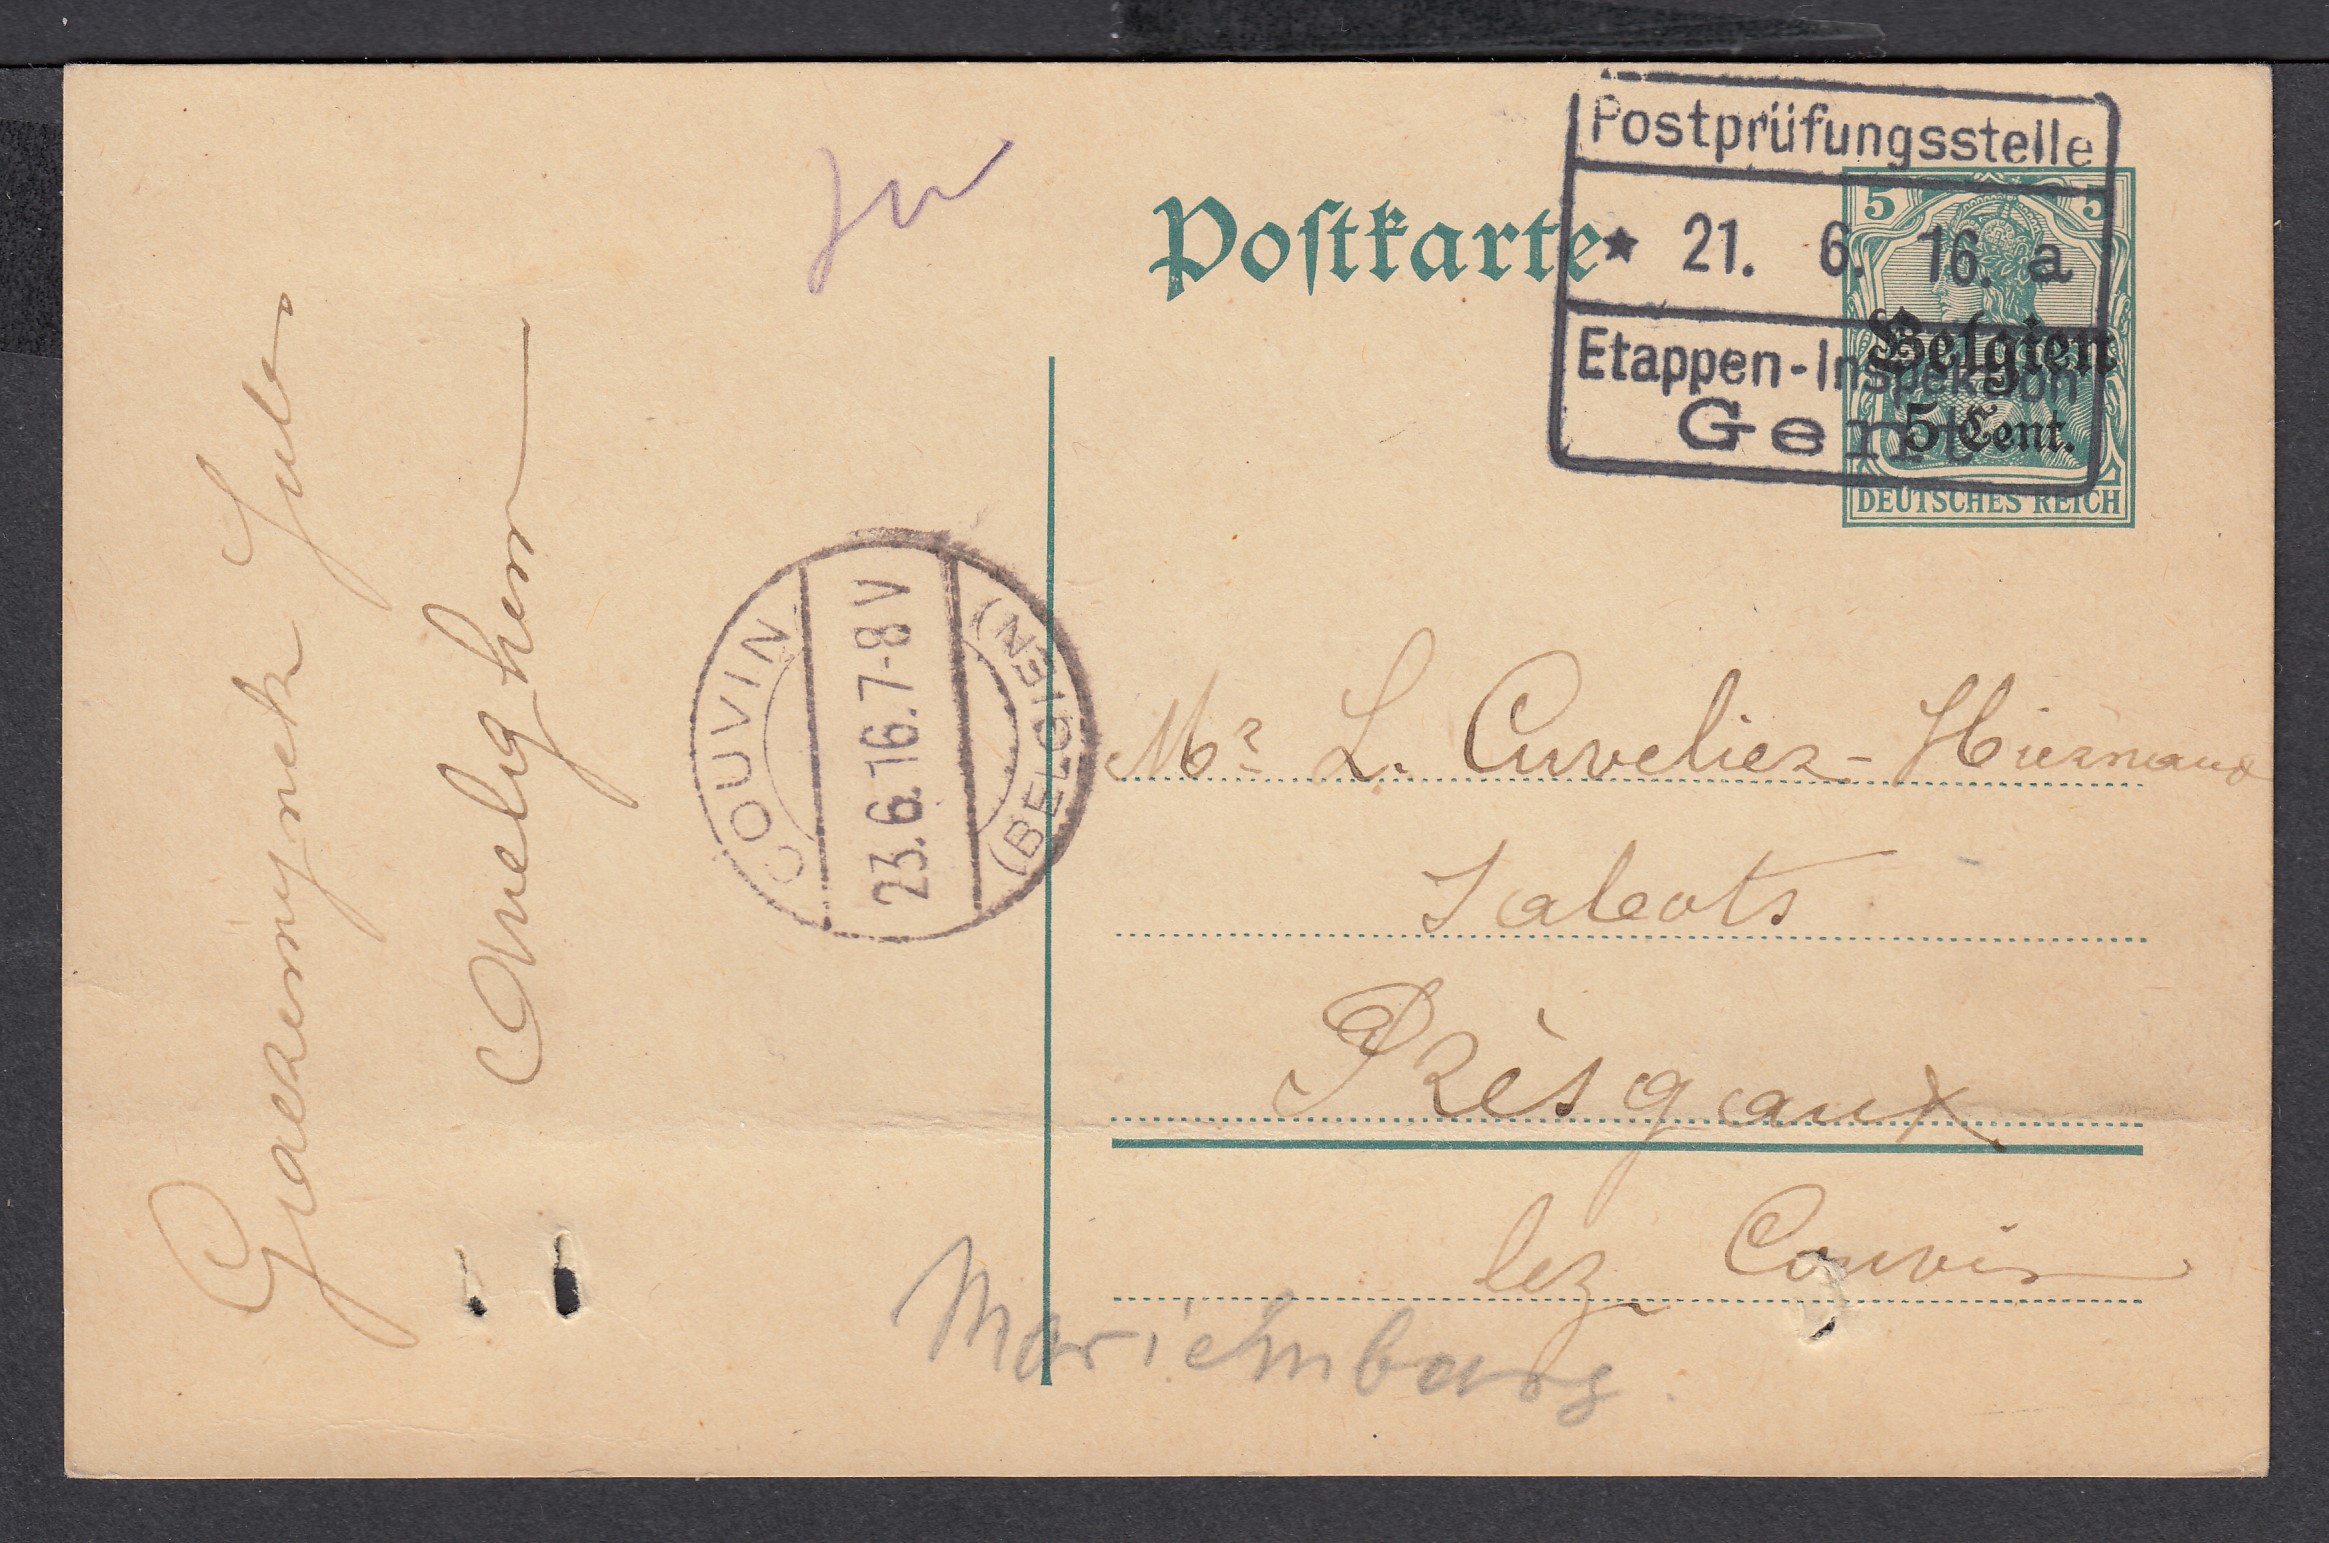 Postkarte
Postprüfungsstelle
* 21. 6. 16. a
Etappen-Inspektion
Gent
5 5
Belgien
5 Cent.
DEUTSCHES REICH
COUVIN
23.6.16.7-8V
(BELGIEN)
Mr L. Cuvelier-Hiernaux
Sabots
Prèsgaux
lez Couvin
Mariembourg.
Graeymynck Jules
Oneleghem